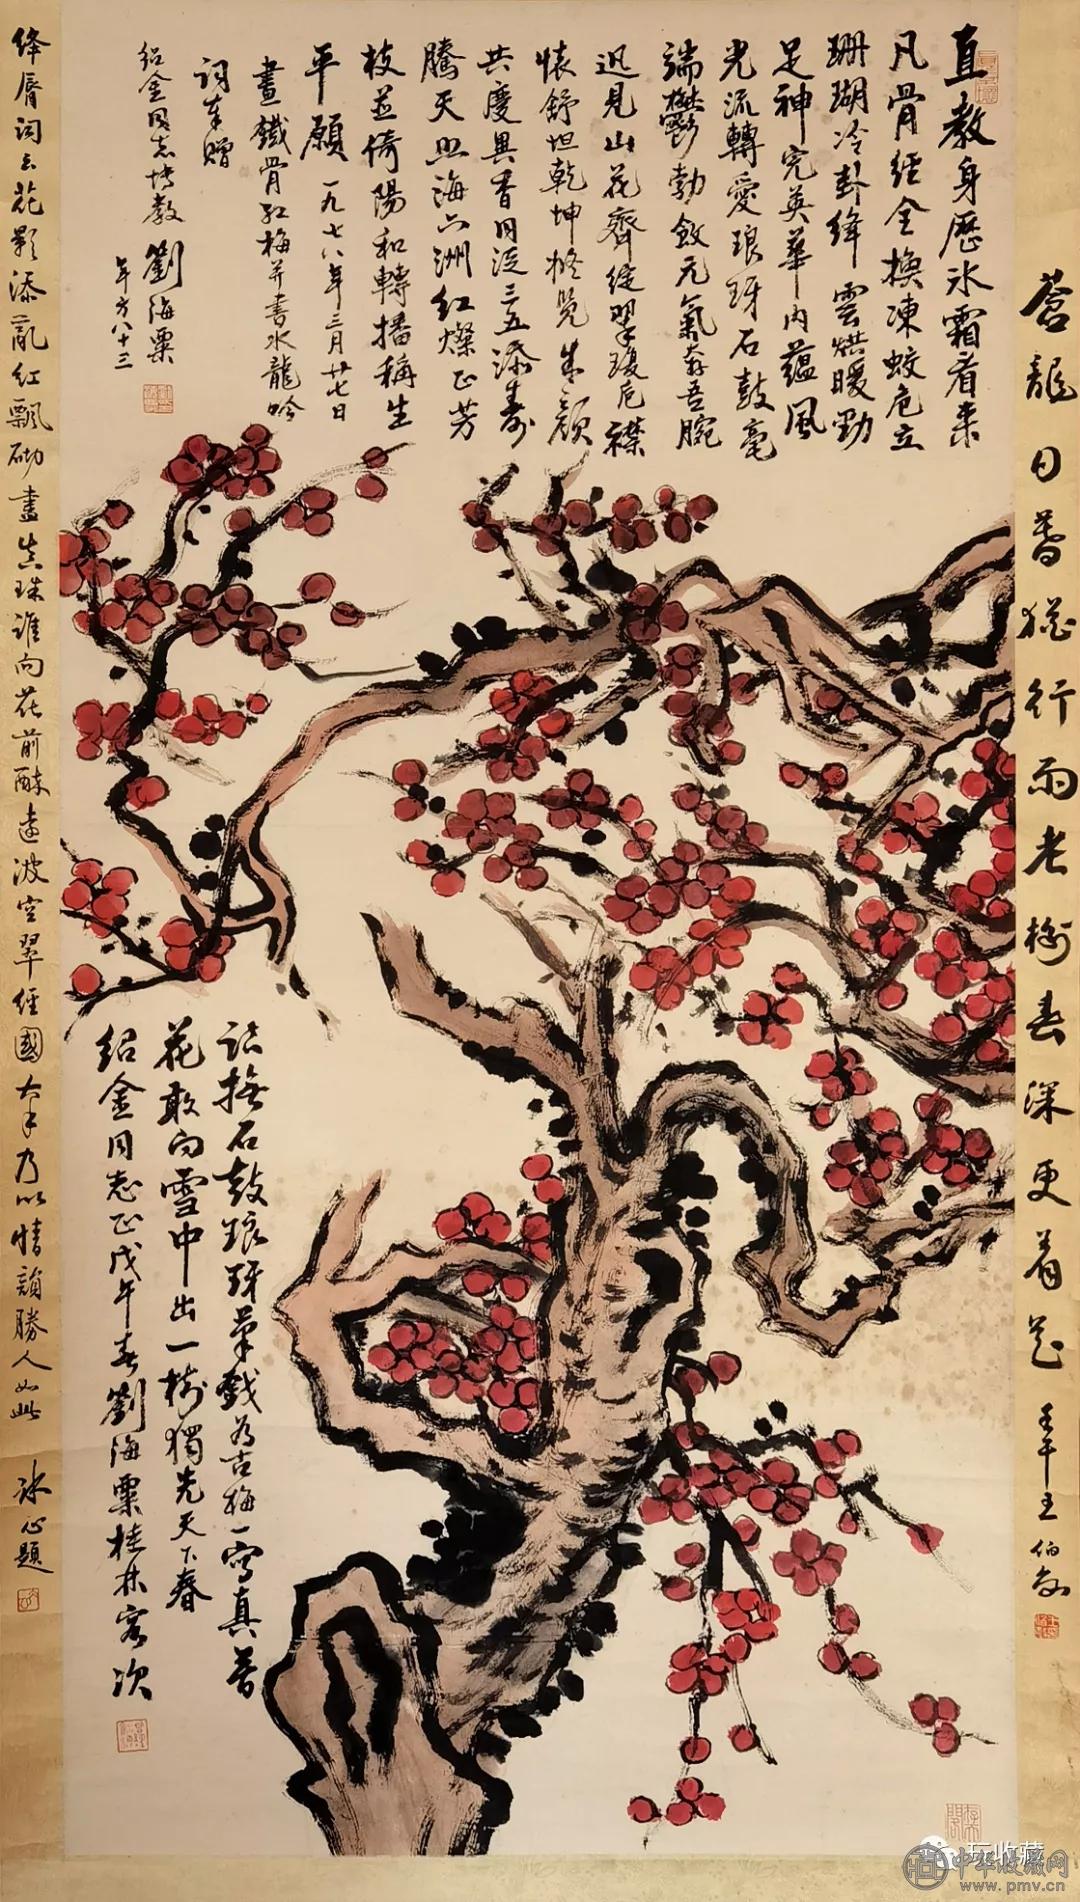 直教身歷冰霜看來
凡骨經全換凍蛟危立
珊瑚冷掛絳雲烘暖勁
足神完英華內蘊風
光流轉愛琅玡石鼓毫
端鬱勃斂元氣奔吾腕
迅見山花齊綻翠瓊卮襟
懷舒坦乾坤攬覺生顏
共慶異香同泛三五添壽
騰天照海六洲紅燦正芳
枝並倚陽和轉播稱生
平願 一九七八年三月廿七日
畫鐵骨紅梅并書水龍吟
詞奉贈
紹金同志博教 劉海粟
年方八十三
誌撫石鼓琅玡筆戲為古梅一寫真昔
花敢向雪中出一樹獨先天下春
紹金同志正戊午春劉海粟桂林客次
蒼龍日暮猶行雨老樹春深更著花 王伯敏
絳脣詞云花影添亂紅飄砌盡真珠誰向花前醉遠波空翠經國大手乃以情韻勝人如此 冰心題
玩收藏
中华收藏网
www.pmv.cn